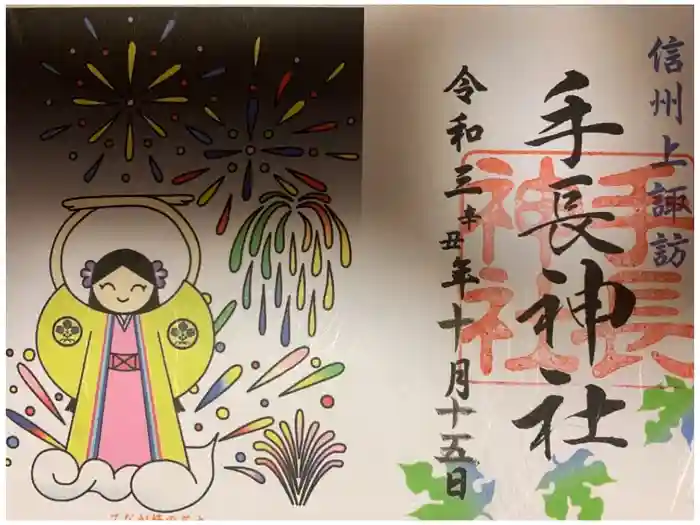 信州上諏訪
手長神社
手長
神社
令和三辛丑年十月十五日